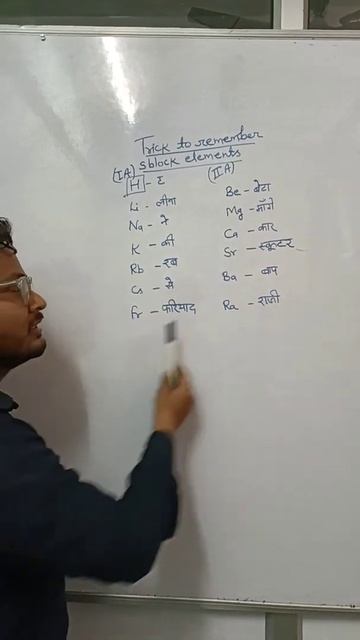 Trick to remember
s block elements
(IA)
H - ह
Li - लीना
Na - ने
K - की
Rb - रब
Cs - से
Fr - फरियाद
(IIA)
Be - बेटा
Mg - माँगे
Ca - कार
Sr - स्कूटर
Ba - बाप
Ra - राजी